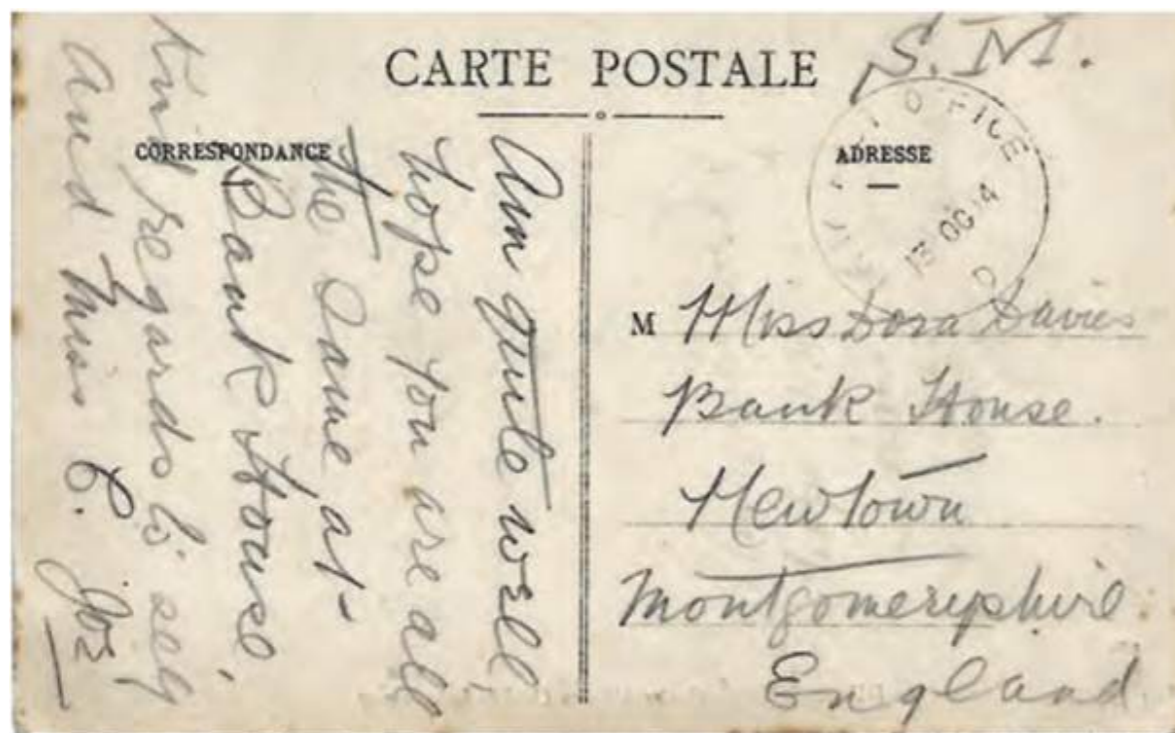 CARTE POSTALE
S.M.
CORRESPONDANCE
ADRESSE
Am quite well,
hope you are all
the same at
Bank House,
kind regards to self
and Miss C. Joe
OFFICE
13 OC 14
D
M Miss Dora Davies
Bank House.
Newtown
Montgomeryshire
England